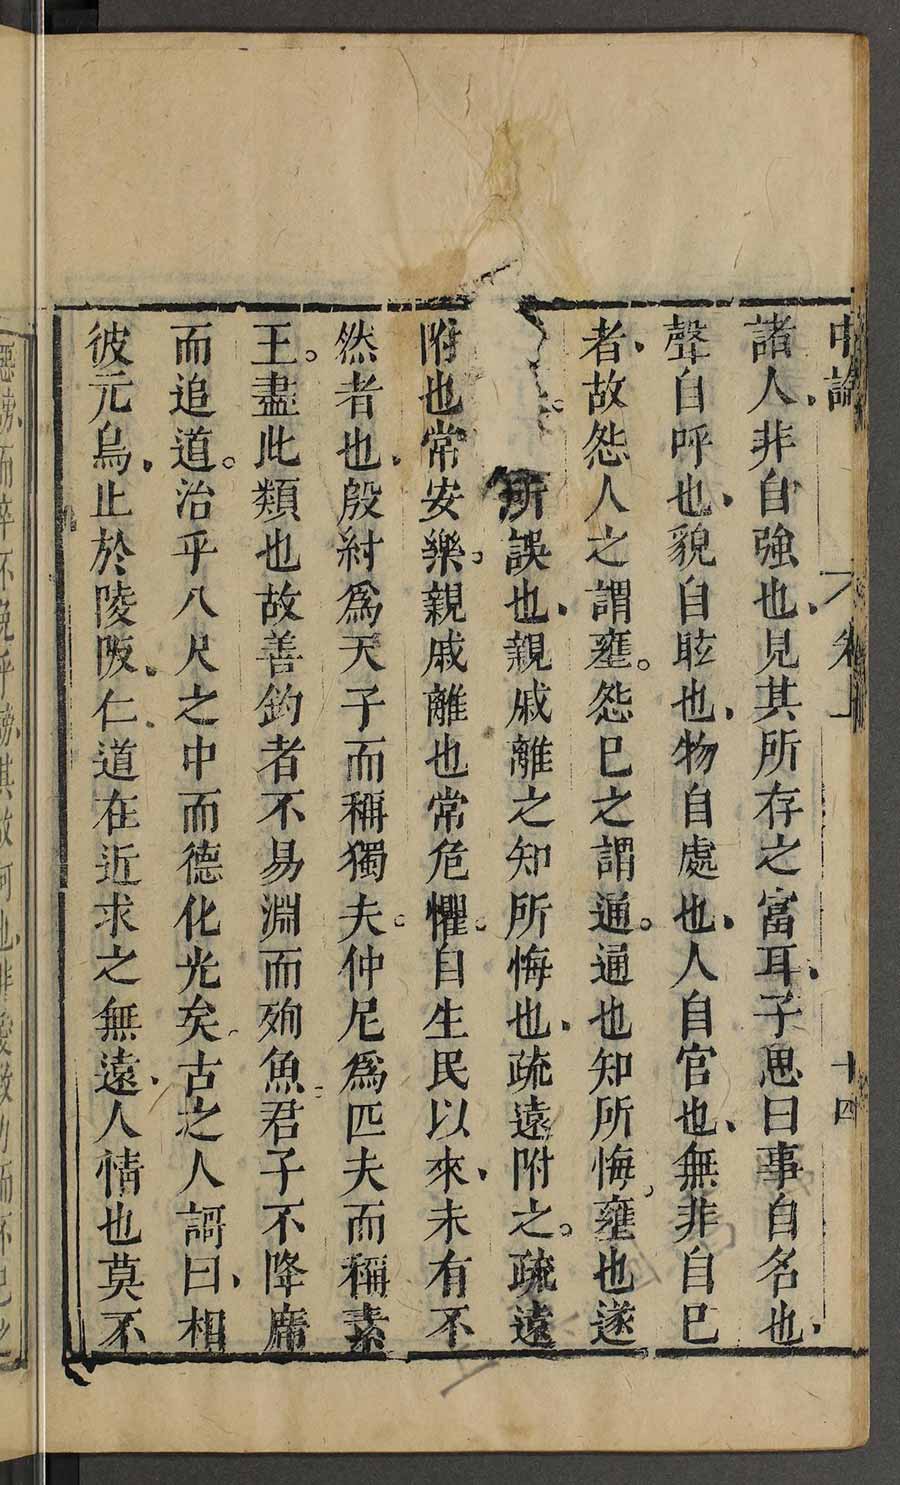 中論 卷上 十四
諸人非自強也見其所存之富耳子思曰事自名也
聲自呼也貌自眩也物自處也人自官也無非自已
者故怨人之謂壅怨已之謂通通也知所悔壅也遂
所誤也親戚離之知所悔也疏遠附之疏遠
附也常安樂親戚離也常危懼自生民以來未有不
然者也殷紂爲天子而稱獨夫仲尼爲匹夫而稱素
王盡此類也故善釣者不易淵而殉魚君子不降席
而追道治乎八尺之中而德化光矣古之人謌曰相
彼元烏止於陵阪仁道在近求之無遠人情也莫不